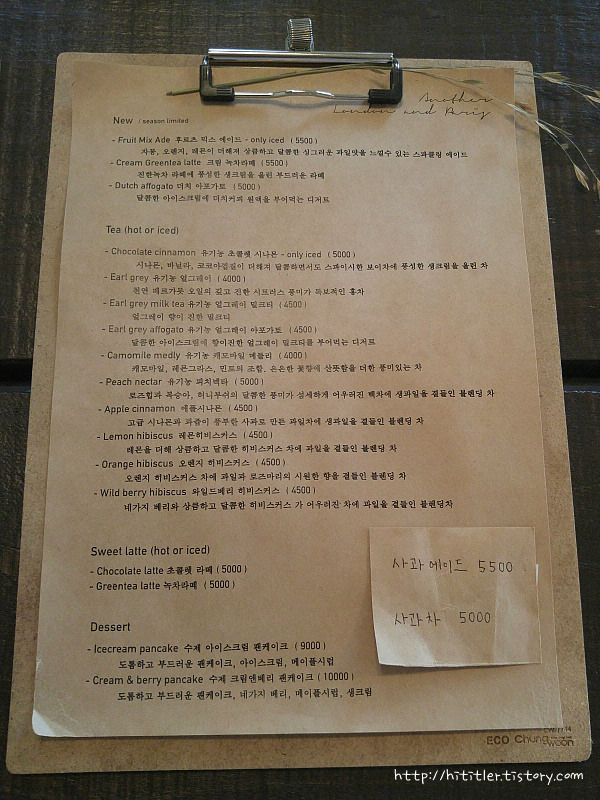 Another
London and Paris
New / season limited
- Fruit Mix Ade 후르츠 믹스 에이드 - only iced ( 5500 )
자몽, 오렌지, 레몬이 더해져 상큼하고 달콤한 싱그러운 과일맛을 느낄수 있는 스파클링 에이드
- Cream Greentea latte 크림 녹차라떼 ( 5500 )
진한녹차 라떼에 풍성한 생크림을 올린 부드러운 라떼
- Dutch affogato 더치 아포가토 ( 5000 )
달콤한 아이스크림에 더치커피 원액을 부어먹는 디저트
Tea (hot or iced)
- Chocolate cinnamon 유기농 초콜렛 시나몬 - only iced ( 5000 )
시나몬, 바닐라, 코코아껍질이 더해져 달콤하면서도 스파이시한 보이차에 풍성한 생크림을 올린 차
- Earl grey 유기농 얼그레이 ( 4000 )
천연 베르가못 오일의 깊고 진한 시트러스 풍미가 독보적인 홍차
- Earl grey milk tea 유기농 얼그레이 밀크티 ( 4500 )
얼그레이 향이 진한 밀크티
- Earl grey affogato 유기농 얼그레이 아포가토 ( 4500 )
달콤한 아이스크림에 향이진한 얼그레이 밀크티를 부어먹는 디저트
- Camomile medly 유기농 캐모마일 메들리 ( 4000 )
캐모마일, 레몬그라스, 민트의 조합. 은은한 꽃향에 산뜻함을 더한 풍미있는 차
- Peach nectar 유기농 피치넥타 ( 5000 )
로즈힙과 복숭아, 허니부쉬의 달콤한 풍미가 섬세하게 어우러진 백차에 생과일을 곁들인 블렌딩 차
- Apple cinnamon 애플시나몬 ( 4500 )
고급 시나몬과 과즙이 풍부한 사과로 만든 과일차에 생과일을 곁들인 블렌딩 차
- Lemon hibiscus 레몬히비스커스 ( 4500 )
레몬을 더해 상큼하고 달콤한 히비스커스 차에 과일을 곁들인 블렌딩 차
- Orange hibiscus 오렌지 히비스커스 ( 4500 )
오렌지 히비스커스 차에 과일과 로즈마리의 시원한 향을 곁들인 블렌딩 차
- Wild berry hibiscus 와일드베리 히비스커스 ( 4500 )
네가지 베리와 상큼하고 달콤한 히비스커스 가 어우러진 차에 과일을 곁들인 블렌딩차
Sweet latte (hot or iced)
- Chocolate latte 초콜렛 라떼 ( 5000 )
- Greentea latte 녹차라떼 ( 5000 )
사과에이드 5500
사과차 5000
Dessert
- Icecream pancake 수제 아이스크림 팬케이크 ( 9000 )
도톰하고 부드러운 팬케이크, 아이스크림, 메이플시럽
- Cream & berry pancake 수제 크림앤베리 팬케이크 ( 10000 )
도톰하고 부드러운 팬케이크, 네가지 베리, 메이플시럽, 생크림
ECO Chungwoon
http://hititler.tistory.com